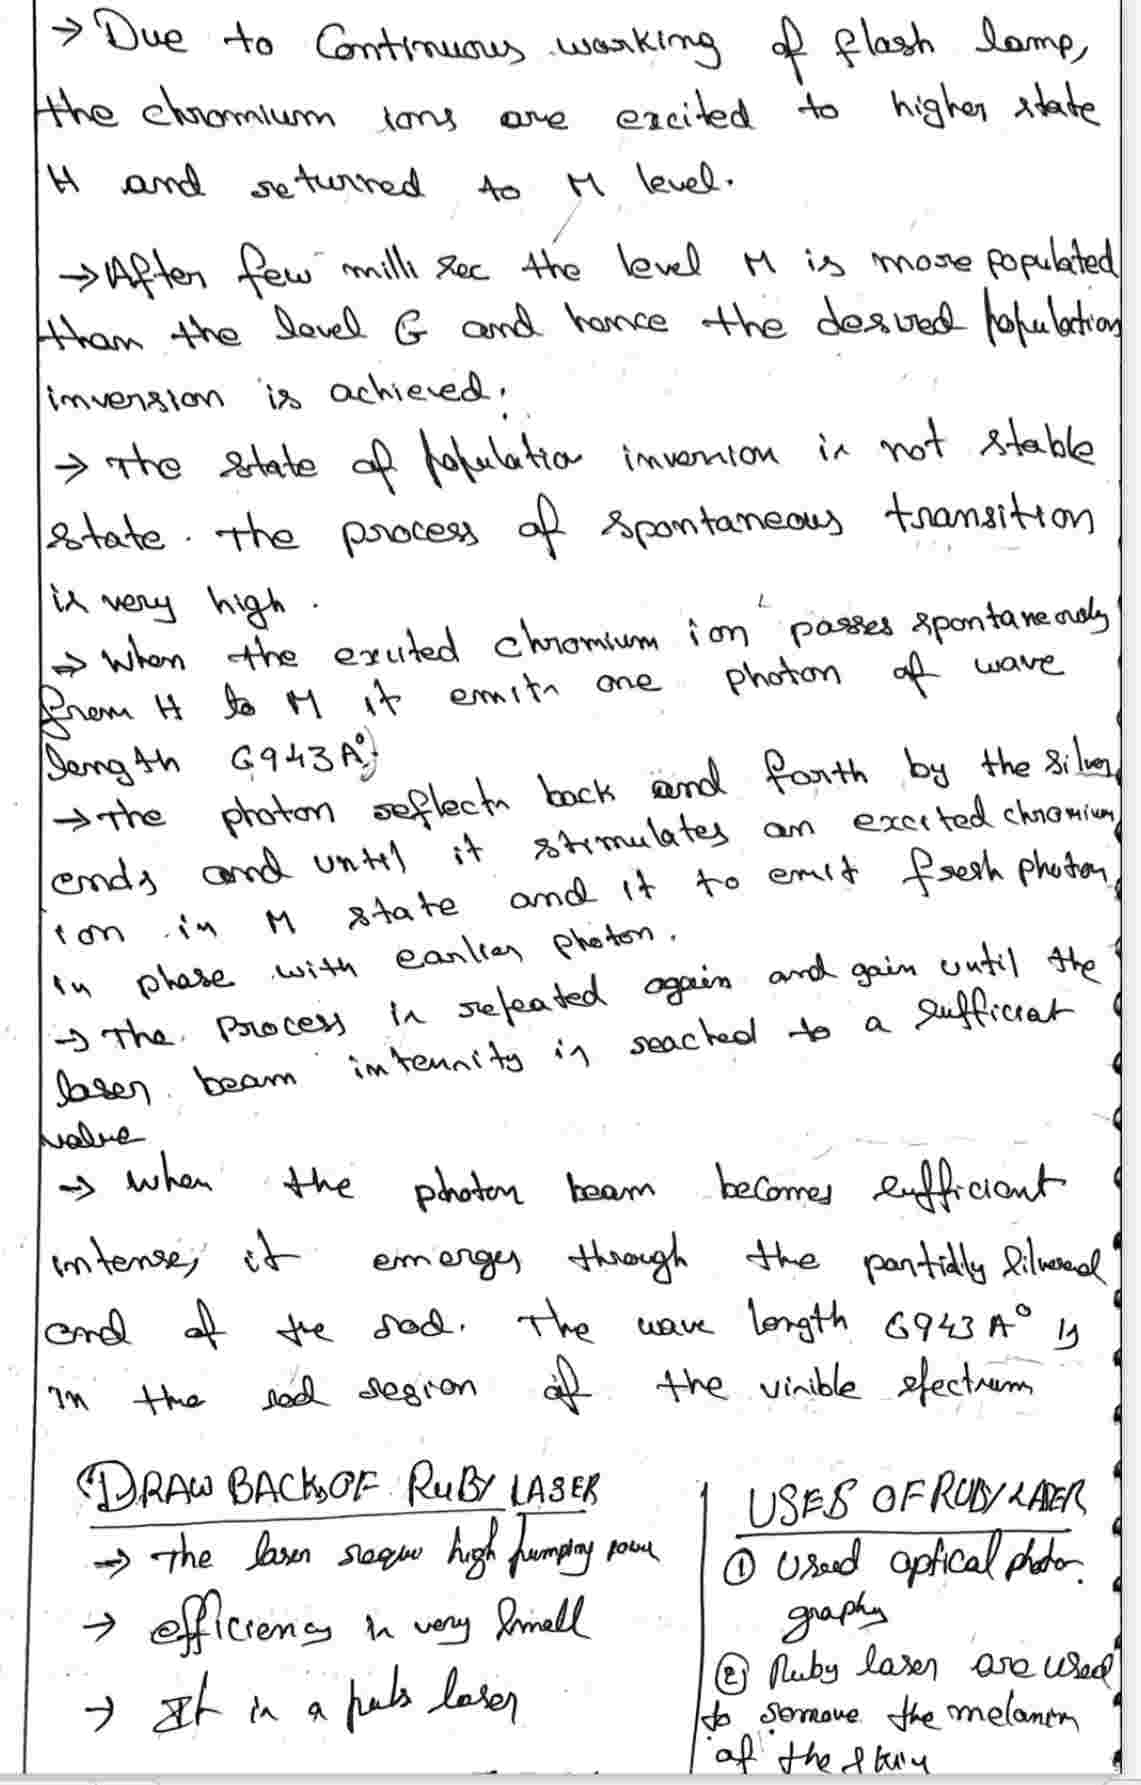 → Due to Continuous working of flash lamp,
the chromium ions are excited to higher state
H and returned to M level.
→ After few milli sec the level M is more populated
than the level G and hence the desired population
inversion is achieved.
→ The state of population inversion is not stable
state. The process of spontaneous transition
is very high.
→ When the excited chromium ion passes spontaneously
from H to M it emits one photon of wave
length 6943A°
→ The photon reflects back and forth by the silver
ends and until it stimulates an excited chromium
ion in M state and it to emit fresh photon
in phase with earlier photon.
→ The Process is repeated again and gain until the
laser beam intensity is reached to a sufficiat
value
→ When the photon beam becomes sufficiant
intense, it emerges through the partidly silvered
end of the rod. The wave length 6943 A° is
in the red region of the visible spectrum
DRAW BACKS OF RUBY LASER
→ The laser requir high pumping power
→ efficiency is very small
→ It is a puls laser
USES OF RUBY LASER
① Used optical photo
graphy
② Ruby laser are used
to remove the melanin
of the skin